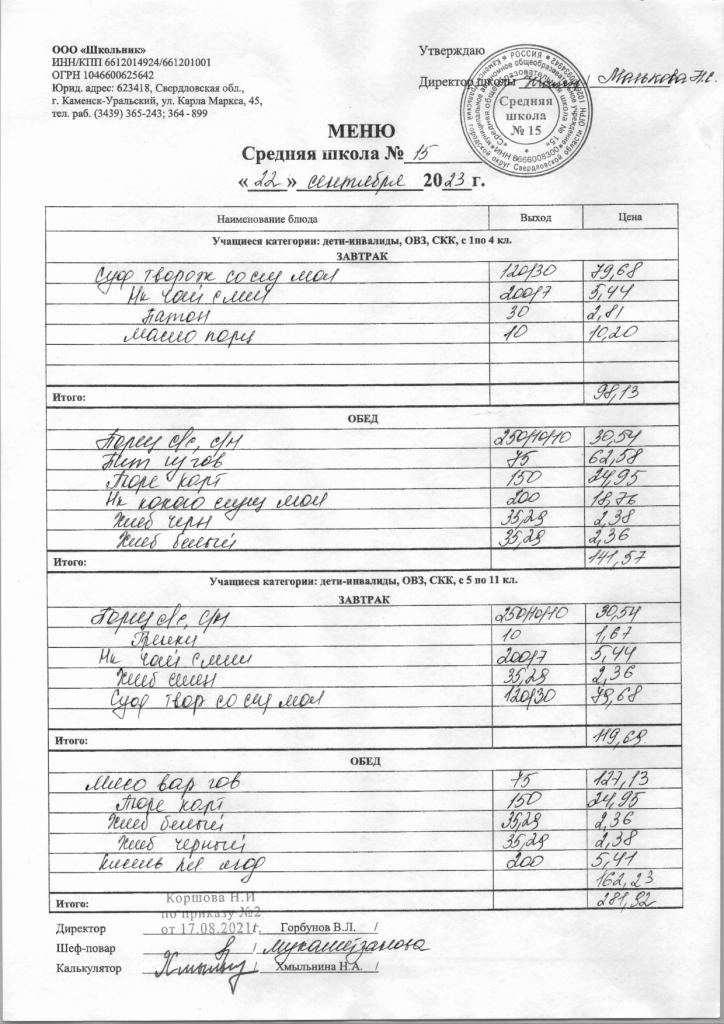 ООО «Школьник»
ИНН/КПП 6612014924/661201001
ОГРН 1046600625642
Юрид. адрес: 623418, Свердловская обл.,
г. Каменск-Уральский, ул. Карла Маркса, 45,
тел. раб. (3439) 365-243; 364 - 899
Утверждаю
Директор школы / Малькова Н.С.
Средняя
школа
№ 15
МЕНЮ
Средняя школа № 15
« 22 » сентября 2023 г.
Наименование блюда Выход Цена
Учащиеся категории: дети-инвалиды, ОВЗ, СКК, с 1по 4 кл.
ЗАВТРАК
Суф творож со сгу мол 120/30 79,68
Нк чай с лим 200/7 5,44
Батон 30 2,81
Масло порц 10 10,20
Итого: 98,13
ОБЕД
Борщ с/с, с/м 250/10/10 30,54
75 62,58
Пюре карт 150 24,95
Нк какао сгущ мол 200 18,76
Хлеб черн 35,29 2,38
Хлеб белый 35,29 2,36
Итого: 141,57
Учащиеся категории: дети-инвалиды, ОВЗ, СКК, с 5 по 11 кл.
ЗАВТРАК
Борщ с/с, с/м 250/10/10 30,54
Гренки 10 1,67
Нк чай с лим 200/7 5,44
Хлеб 35,29 2,36
Суф твор со сгу мол 120/30 79,68
Итого: 119,69
ОБЕД
Мясо вар гов 75 127,13
Пюре карт 150 24,95
Хлеб белый 35,29 2,36
Хлеб черный 35,29 2,38
Кисель ягод 200 5,41
162,23
Итого: 281,92
Коршова Н.И
по приказу №2
от 17.08.2021г.
Директор / Горбунов В.Л. /
Шеф-повар / Мухаметзанова
Калькулятор / Хмыльнина Н.А. /